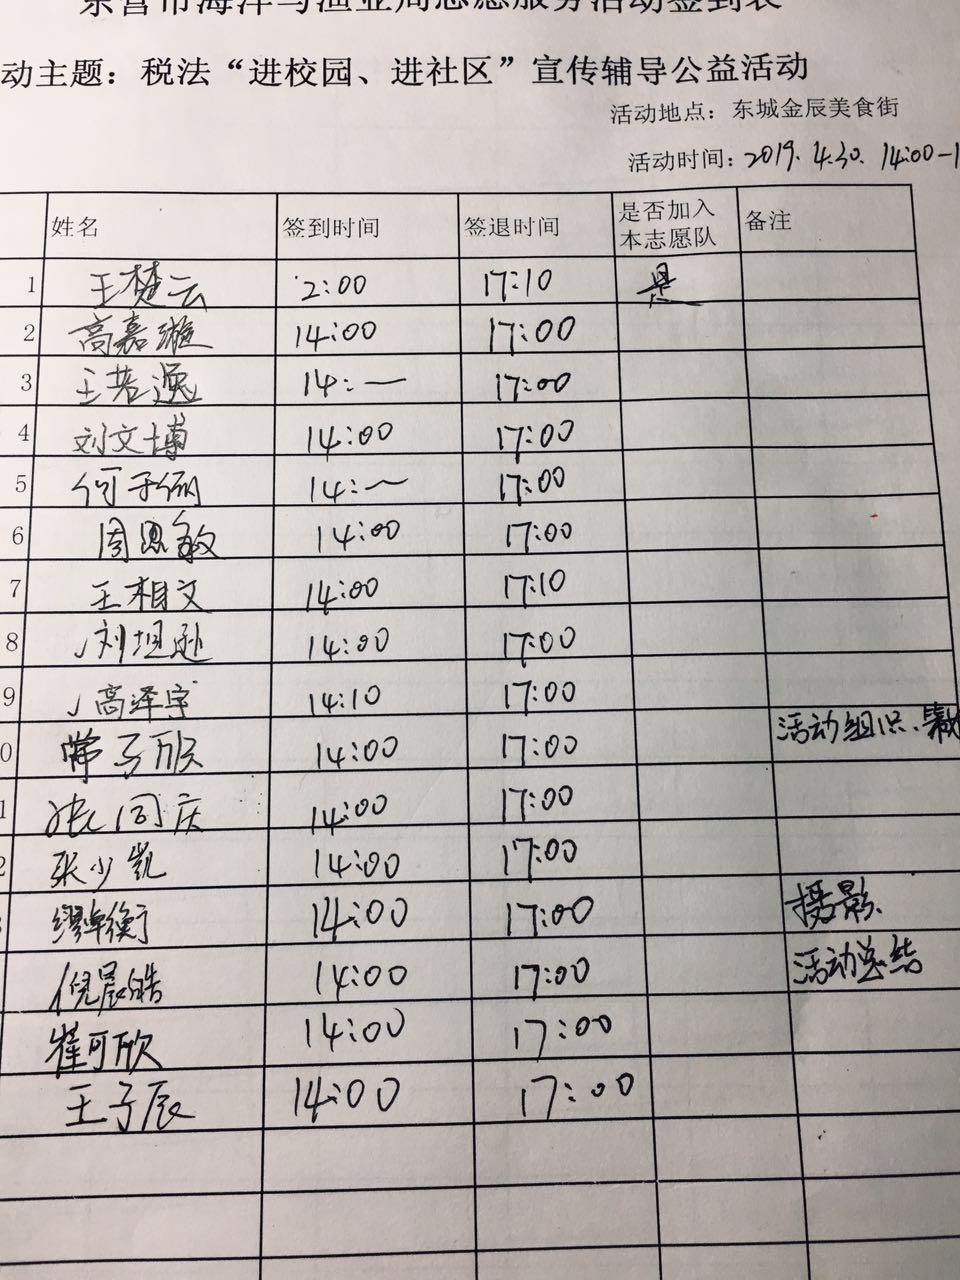 东营市海洋与渔业局志愿服务活动签到表
动主题：税法“进校园、进社区”宣传辅导公益活动
活动地点：东城金辰美食街
活动时间：2019.4.30. 14:00-1
姓名 签到时间 签退时间 是否加入本志愿队 备注
1 王楚云 2:00 17:10 是
2 高嘉璇 14:00 17:00
3 王若逸 14:— 17:00
4 刘文博 14:00 17:00
5 何子 14:— 17:00
6 周思敏 14:00 17:00
7 王相文 14:00 17:10
8 刘坦逊 14:00 17:00
9 高泽宇 14:10 17:00
0 常子欣 14:00 17:00 活动组织、
1 张同庆 14:00 17:00
2 张少凯 14:00 17:00
缪卓衡 14:00 17:00 摄影
倪晨皓 14:00 17:00 活动总结
崔可欣 14:00 17:00
王子辰 14:00 17:00